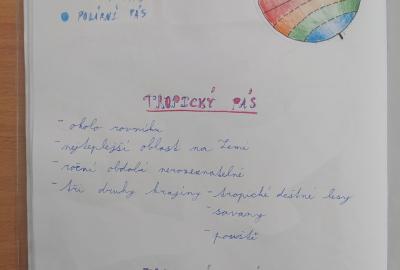 POLÁRNÍ PÁS
TROPICKÝ PÁS
- okolo rovníku
- nejteplejší oblast na Zemi
- roční období nerozeznatelné
- tři druhy krajiny - tropické deštné lesy
- savany
- pouště